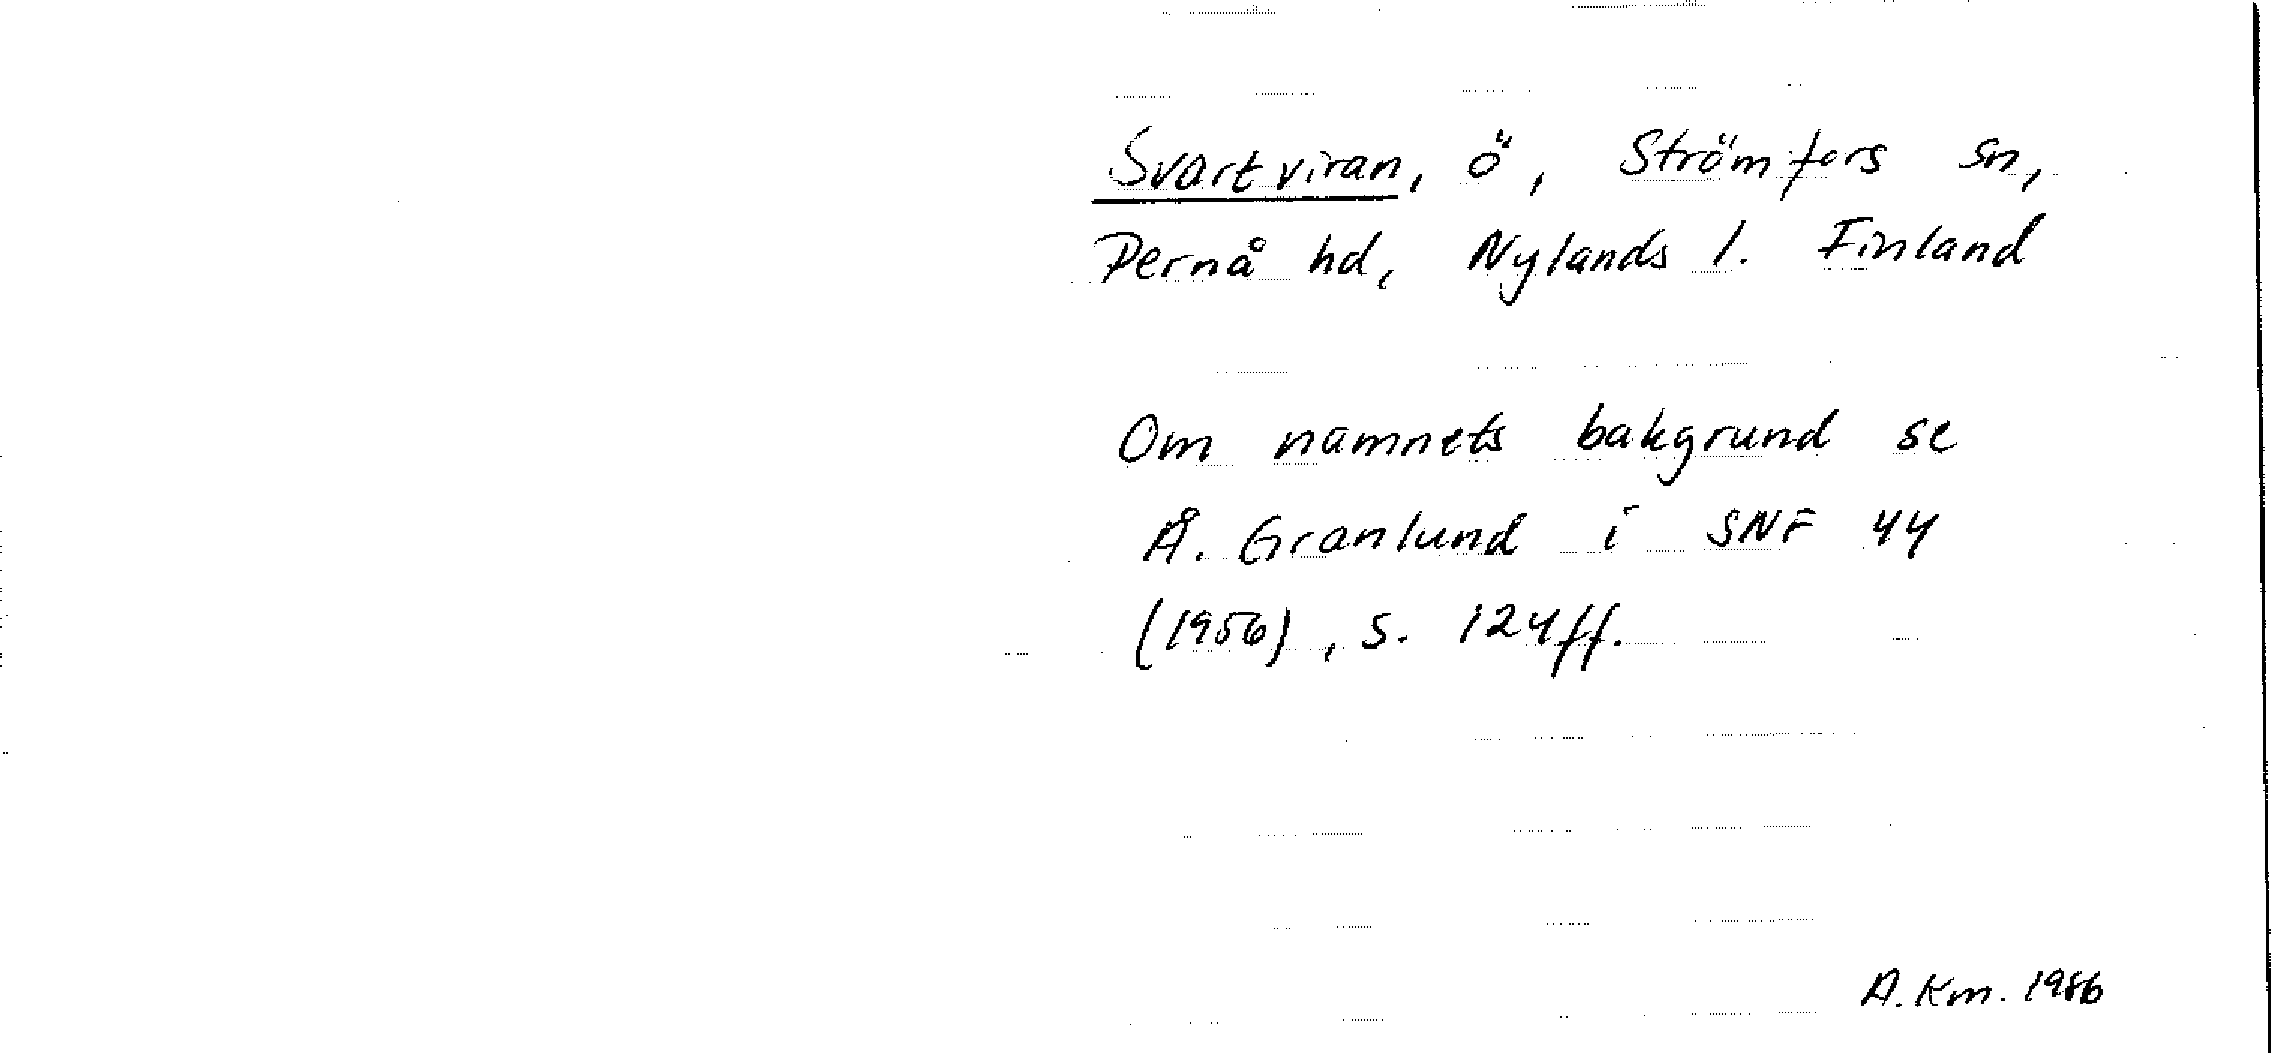 Svartviran, ö, Strömfors sn,
Pernå hd, Nylands l. Finland
Om namnets bakgrund se
Å. Granlund i SNF 44
(1956), s. 124ff.
A. Km. 1986